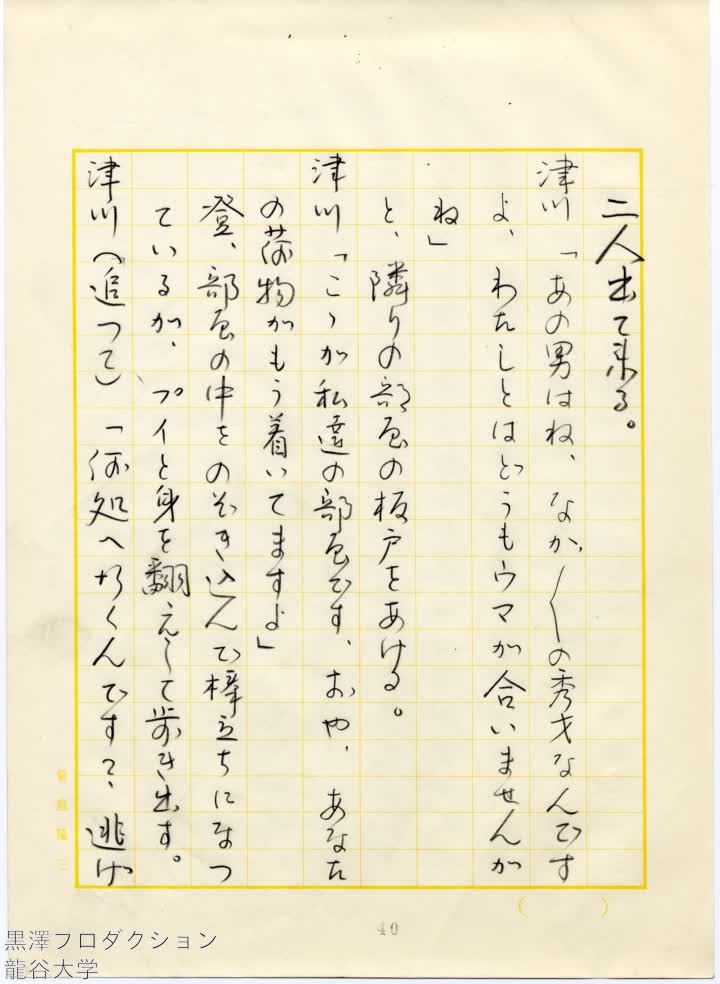 二人出て来る。
津川「あの男はね、なか〱の秀才なんです
よ、わたしとはどうもウマが合いませんが
ね」
と、隣りの部屋の板戸をあける。
津川「こゝが私達の部屋です、おや、あなた
の荷物がもう着いてますよ」
登、部屋の中をのぞき込んで棒立ちになっ
ているが、プイと身を翻えして歩き出す。
津川（追って）「何処へ行くんです？、逃げ
40
黒澤プロダクション
龍谷大学